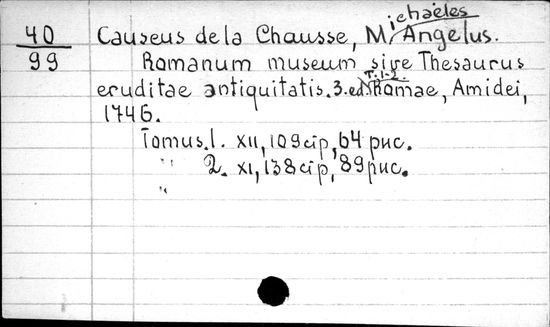 40
99
Causeus de la Chausse, Michaëles Angelus.
Romanum museum sive Thesaurus
eruditae antiquitatis. 3. ed. T. 1-2. Romae, Amidei,
1746.
Tomus. 1. XII, 109 cip, 64 рис.
" 2. XI, 138 cip, 89 рис.
"